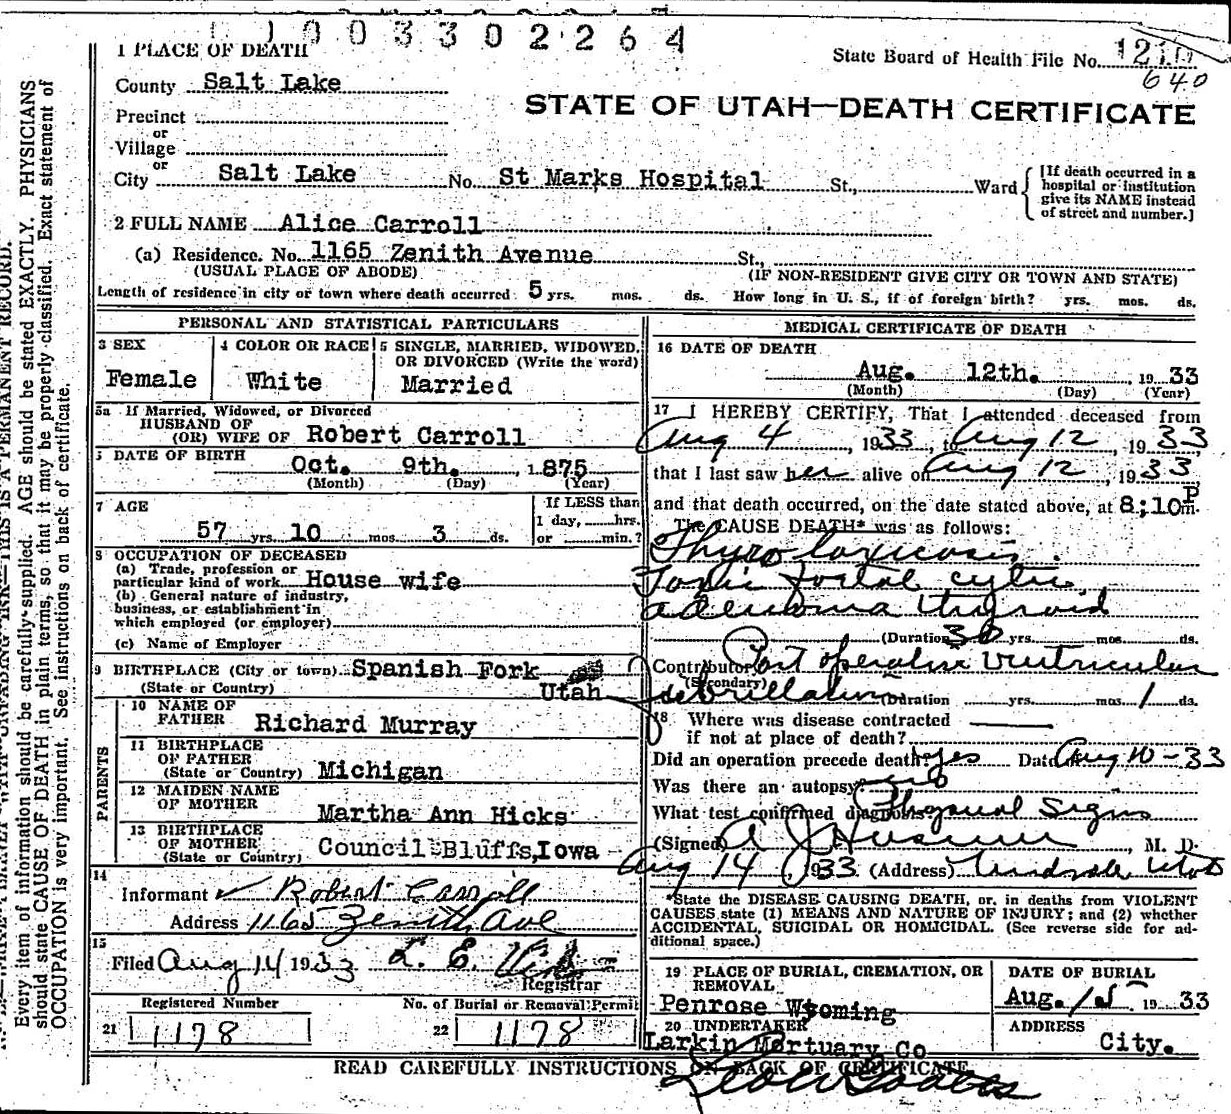 1003302264
1 PLACE OF DEATH
State Board of Health File No. 1210
640
County Salt Lake
STATE OF UTAH—DEATH CERTIFICATE
Precinct
or
Village
or
City Salt Lake No. St Marks Hospital St., Ward
[If death occurred in a hospital or institution give its NAME instead of street and number.]
2 FULL NAME Alice Carroll
(a) Residence. No. 1165 Zenith Avenue St.,
(USUAL PLACE OF ABODE) (IF NON-RESIDENT GIVE CITY OR TOWN AND STATE)
Length of residence in city or town where death occurred 5 yrs. mos. ds. How long in U. S., if of foreign birth? yrs. mos. ds.
PERSONAL AND STATISTICAL PARTICULARS
3 SEX
Female
4 COLOR OR RACE
White
5 SINGLE, MARRIED, WIDOWED, OR DIVORCED (Write the word)
Married
5a If Married, Widowed, or Divorced
HUSBAND OF
(OR) WIFE OF Robert Carroll
DATE OF BIRTH
Oct. 9th. , 1875
(Month) (Day) (Year)
7 AGE
57 yrs. 10 mos. 3 ds.
If LESS than
1 day, hrs.
or min.?
8 OCCUPATION OF DECEASED
(a) Trade, profession or
particular kind of work House wife
(b) General nature of industry,
business, or establishment in
which employed (or employer)
(c) Name of Employer
9 BIRTHPLACE (City or town) Spanish Fork
(State or Country) Utah
PARENTS
10 NAME OF
FATHER Richard Murray
11 BIRTHPLACE
OF FATHER
(State or Country) Michigan
12 MAIDEN NAME
OF MOTHER Martha Ann Hicks
13 BIRTHPLACE
OF MOTHER
(State or Country) Council Bluffs, Iowa
14
Informant Robert Carroll
Address 1165 Zenith Ave
15
Filed Aug 14 1933 L. E.
Registrar
Registered Number
21 1178
No. of Burial or Removal Permit
22 1178
MEDICAL CERTIFICATE OF DEATH
16 DATE OF DEATH
Aug. 12th. , 1933
(Month) (Day) (Year)
17 I HEREBY CERTIFY, That I attended deceased from
Aug 4 , 1933, to Aug 12 , 1933
that I last saw her alive on Aug 12 , 1933
and that death occurred, on the date stated above, at 8:10 P m.
The CAUSE DEATH* was as follows:
Thyrotoxicosis
adenoma thyroid
(Duration 30 yrs. mos. ds.
Contributory Post operative Ventricular
(Secondary)
febrillation (Duration yrs. mos. 1 ds.
18 Where was disease contracted
if not at place of death?
Did an operation precede death? Yes Date Aug 10-33
Was there an autopsy? no
What test confirmed diagnosis? Physical Signs
(Signed) A J , M. D.
Aug 14 , 1933 (Address)
*State the DISEASE CAUSING DEATH, or, in deaths from VIOLENT
CAUSES, state (1) MEANS AND NATURE OF INJURY; and (2) whether
ACCIDENTAL, SUICIDAL OR HOMICIDAL. (See reverse side for ad-
ditional space.)
19 PLACE OF BURIAL, CREMATION, OR
REMOVAL
Penrose Wyoming
DATE OF BURIAL
Aug. 15 1933
20 UNDERTAKER
Larkin Mortuary Co
ADDRESS
City.
READ CAREFULLY INSTRUCTIONS ON BACK OF CERTIFICATE
Every item of information should be carefully supplied. AGE should be stated EXACTLY. PHYSICIANS
should state CAUSE OF DEATH in plain terms, so that it may be properly classified. Exact statement of
OCCUPATION is very important. See instructions on back of certificate.
THIS IS A PERMANENT RECORD.